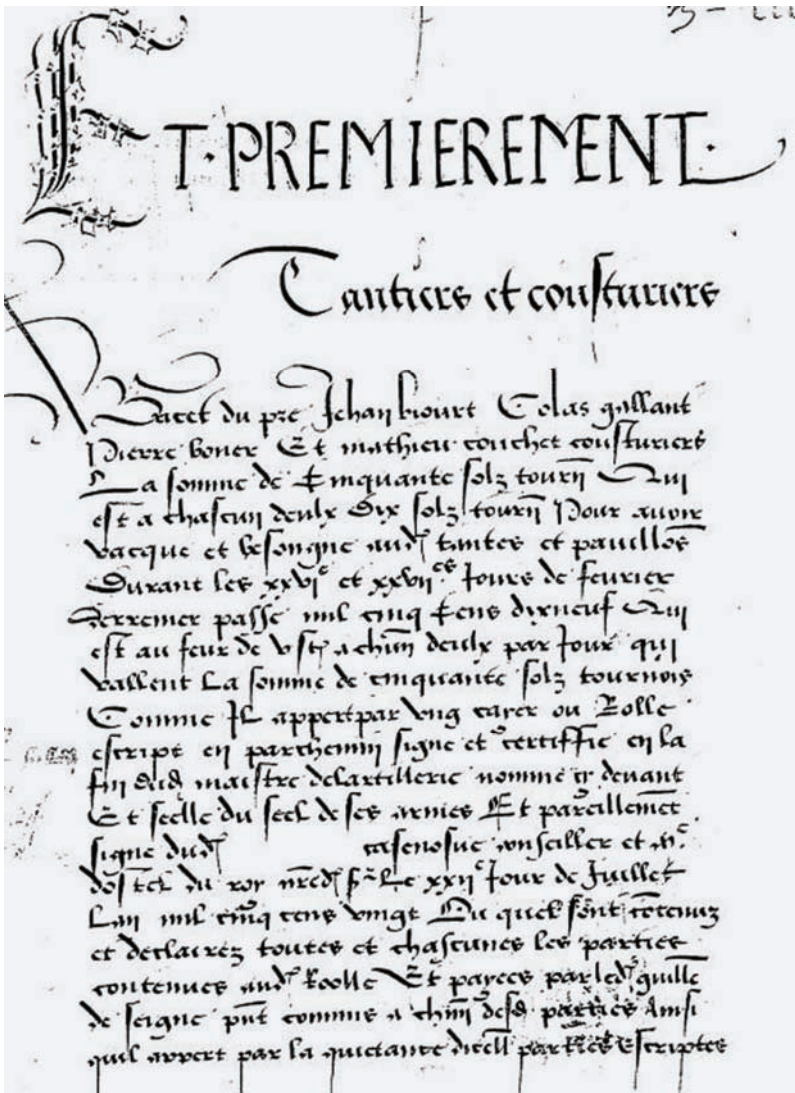 ET·PREMIEREMENT·
Tantiers et cousturiers
Jehan biourt Colas gallant
Pierre boner Et mathieu couchet cousturiers
La somme de Cinquante solz tourñ Qui
est a chascun deulx dix solz tourñ Pour auoir
vacque et besongne aud tantes et pauillos
Durant les xxvje et xxvijes Jours de feurier
derrenier passe mil cinq Cens dixneuf Qui
est au feur de v st a chun deulx par Jour qui
vallent La somme de cinquante solz tournois
Comme Il appert par vng cayer ou Rolle
escript en parchemin signe et certiffie en la
fin dud maistre delartillerie nomme cy deuant
Et seelle du seel de ses armes Et pareillemet
signe dud casenosue conseiller et me
dostel du roy nred sr Le xxije Jour de Juillet
Lan mil cinq cens vingt Ou quel sont cotenuz
et declairez toutes et chascunes les parties
contenues aud Roolle Et payees par led guille
de seigne pnt commis a chun desd parties Ainsi
quil appert par la quictance dicell parties Escriptes